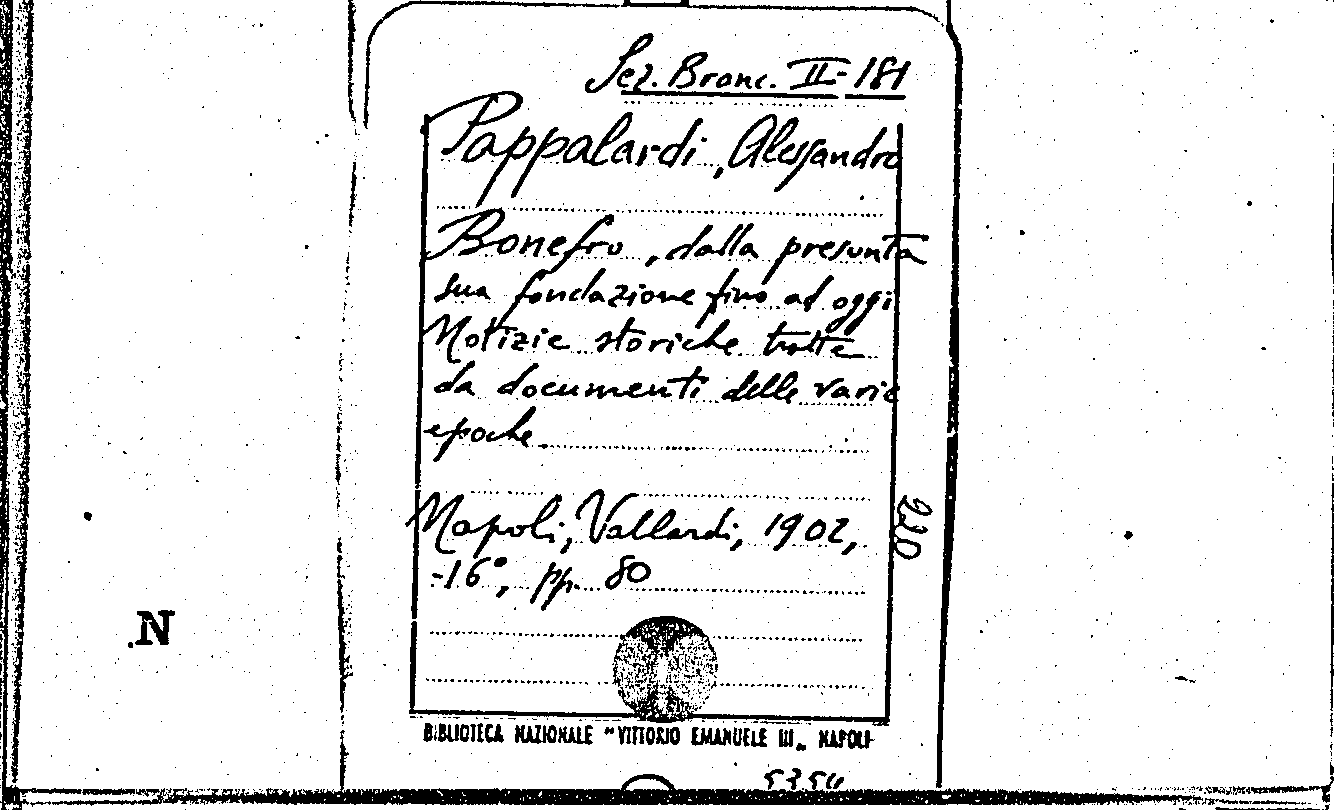 Sez. Branc. II-181
Pappalardi, Alessandro
Bonefro, dalla presunta
sua fondazione fino ad oggi
Notizie storiche tratte
da documenti delle varie
epoche.
Napoli, Vallardi, 1902,
-16°, pp. 80
220
N
BIBLIOTECA NAZIONALE "VITTORIO EMANUELE III„ NAPOLI